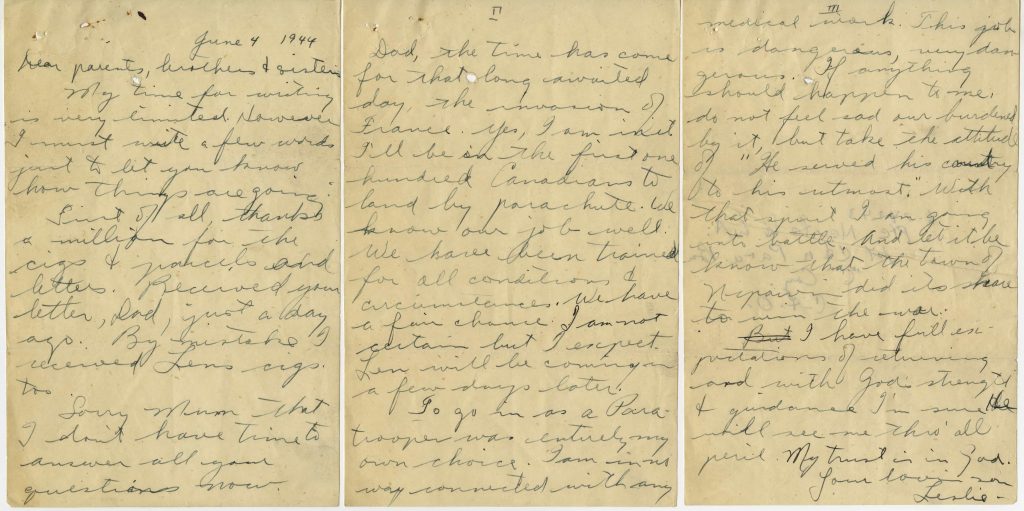 June 4 1944
Dear parents, brothers & sisters
My time for writing
is very limited. However
I must write a few words
just to let you know
how things are going.
First of all, thanks
a million for the
cigs & parcels and
letters. Received your
letter, Dad, just a day
ago. By mistake I
received Lens cigs.
too.
Sorry Mum that
I don't have time to
answer all your
questions now.
II
Dad, the time has come
for that long awaited
day, the invasion of
France. Yes, I am in it.
I'll be in the first one
hundred Canadians to
land by parachute. We
know our job well.
We have been trained
for all conditions &
circumstances. We have
a fair chance. I am not
certain but I expect
Len will be coming in
a few days later.
To go in as a Para-
trooper was entirely my
own choice. I am in no
way connected with any
III
medical work. This job
is dangerous, very dan
gerous. If anything
should happen to me,
do not feel sad or burdened
by it, but take the attitude
of "He served his country
to his utmost." With
that spirit I am going
into battle. And let it be
known that the town of
Nipawin did its share
to win the war.
But I have full ex-
pectations of returning
and with God's strength
& guidance I'm sure He
will see me thro' all
peril. My trust is in God.
Your lovin son
Leslie -